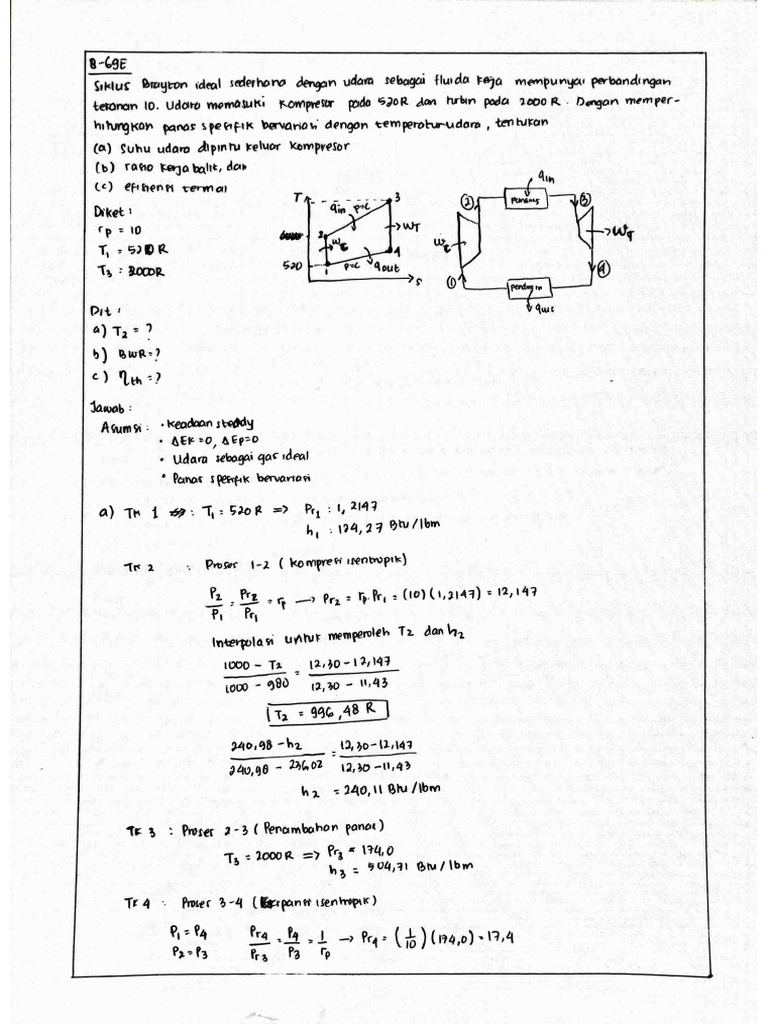 8-69E
Siklus Brayton ideal sederhana dengan udara sebagai fluida kerja mempunyai perbandingan
tekanan 10. Udara memasuki kompresor pada 520R dan turbin pada 2000 R. Dengan memper-
hitungkan panas spesifik bervariasi dengan temperatur udara, tentukan
(a) Suhu udara dipintu keluar kompresor
(b) rasio kerja balik, dan
(c) efisiensi termal
Diket :
rp = 10
T1 = 520 R
T3 : 2000R
T
3
qin
p=c
2
WT
4
520
1
p=c
qout
s
qin
2
3
WT
1
4
qout
Dit :
a) T2 = ?
b) BWR = ?
c) ηth = ?
Jawab :
Asumsi : • Keadaan steady
• ΔEK=0, ΔEP=0
• Udara sebagai gas ideal
• Panas spesifik bervariasi
a) TK 1 : T1 = 520 R => Pr1 : 1,2147
h1 : 124,27 Btu/lbm
TK 2 : Proses 1-2 (kompresi isentropik)
P2/P1 = Pr2/Pr1 = rp → Pr2 = rp.Pr1 = (10)(1,2147) = 12,147
Interpolasi untuk memperoleh T2 dan h2
1000 - T2 / 1000 - 980 = 12,30 - 12,147 / 12,30 - 11,43
T2 = 996,48 R
240,98 - h2 / 240,98 - 236,02 = 12,30 - 12,147 / 12,30 - 11,43
h2 = 240,11 Btu/lbm
TK 3 : Proses 2-3 (Penambahan panas)
T3 = 2000 R => Pr3 = 174,0
h3 = 504,71 Btu/lbm
TK 4 : Proses 3-4 (Ekspansi isentropik)
P1 = P4
P2 = P3
Pr4/Pr3 = P4/P3 = 1/rp → Pr4 = (1/10)(174,0) = 17,4